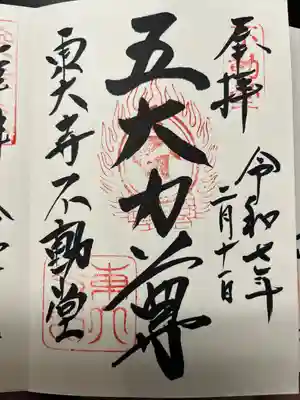 登拝
令和七年
二月十一日
五大力尊
東大寺不動堂